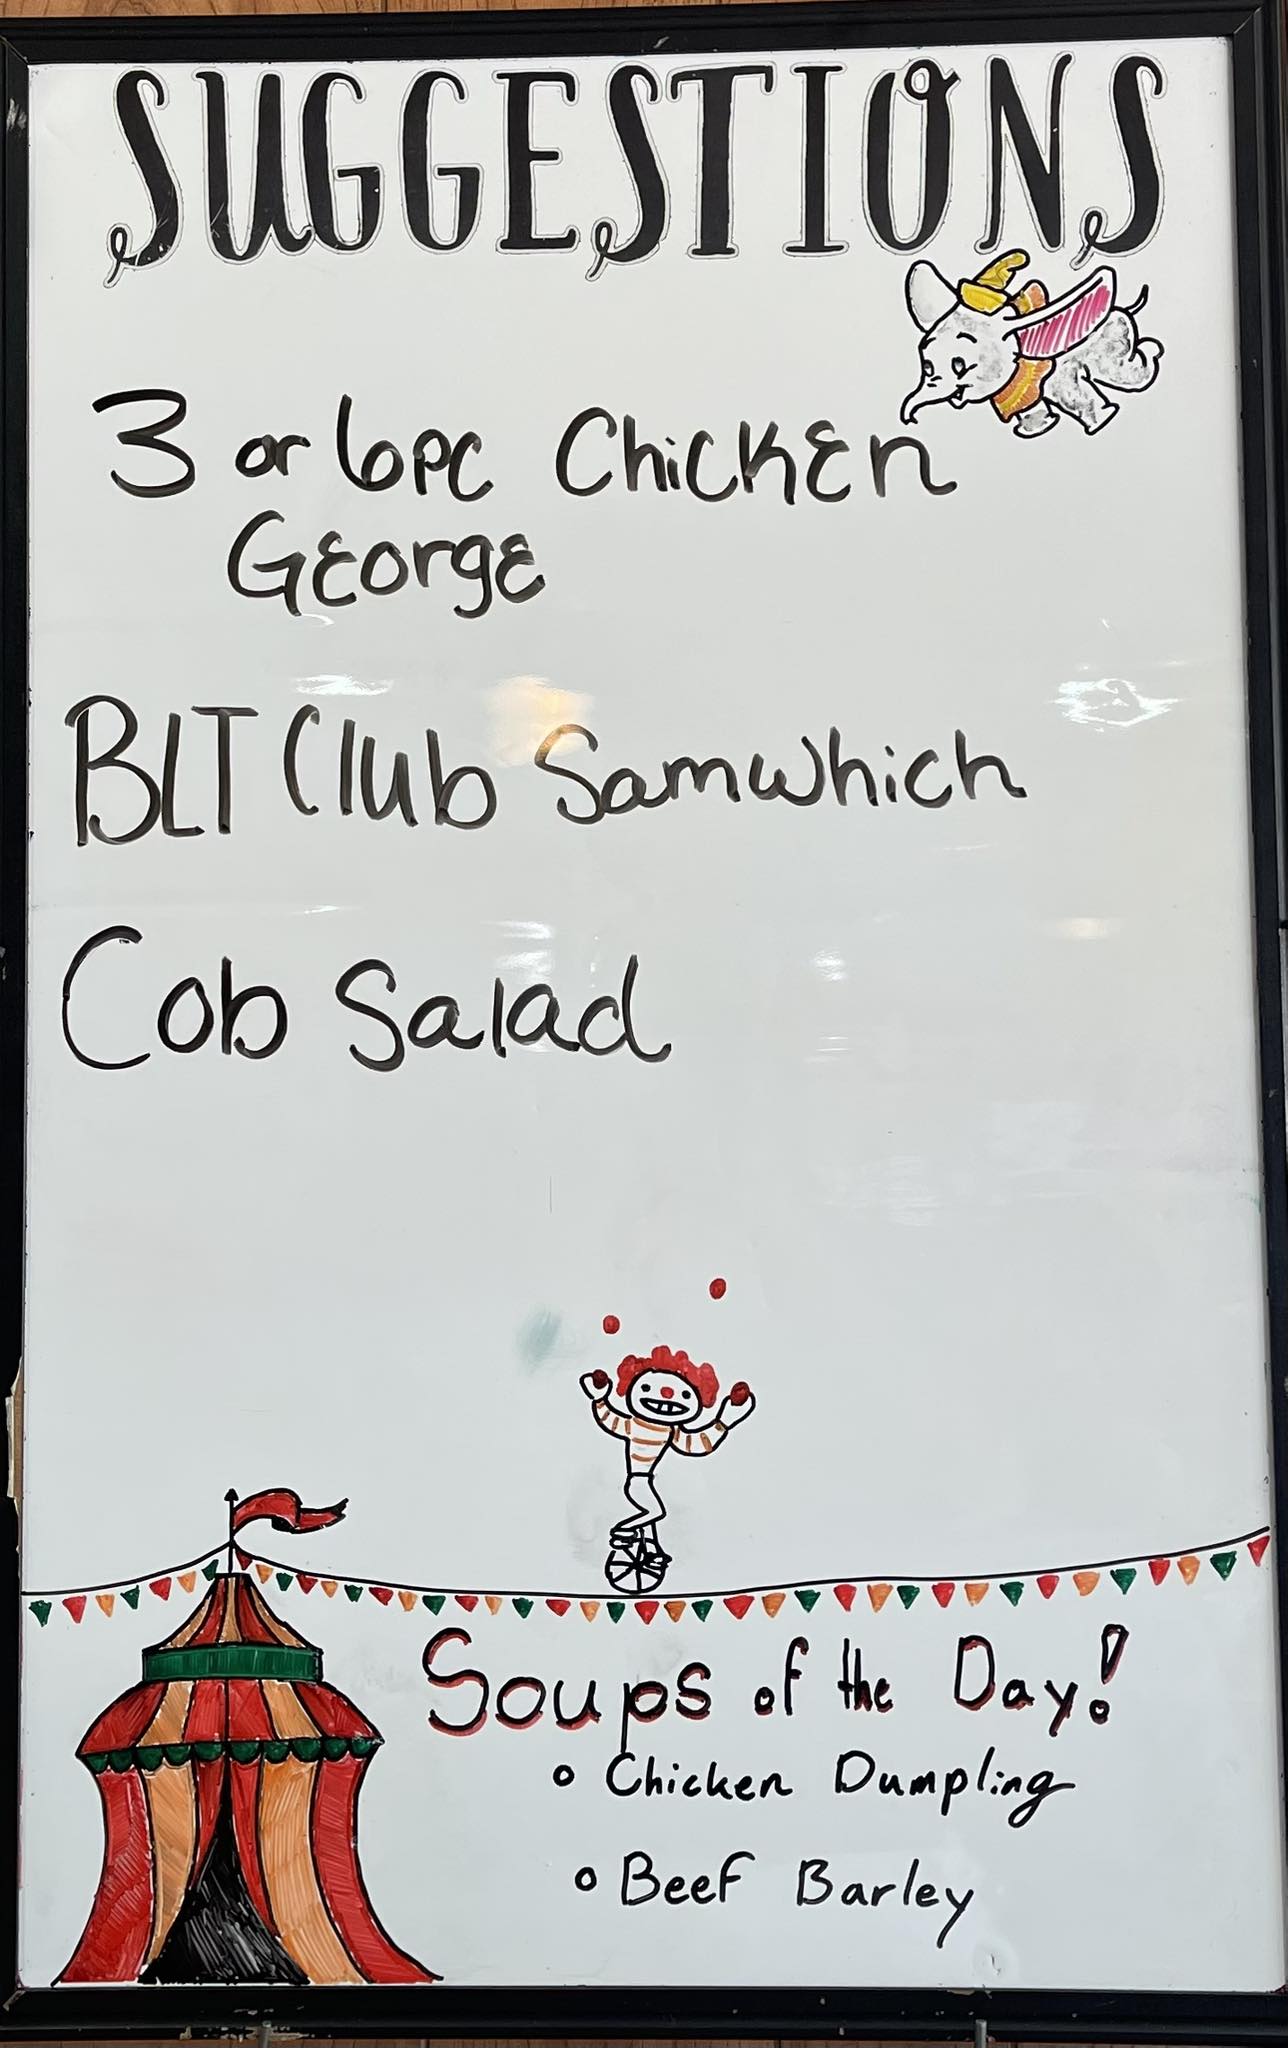 SUGGESTIONS
3 or 6pc Chicken
George
BLT Club Samwhich
Cob Salad
Soups of the Day!
• Chicken Dumpling
• Beef Barley